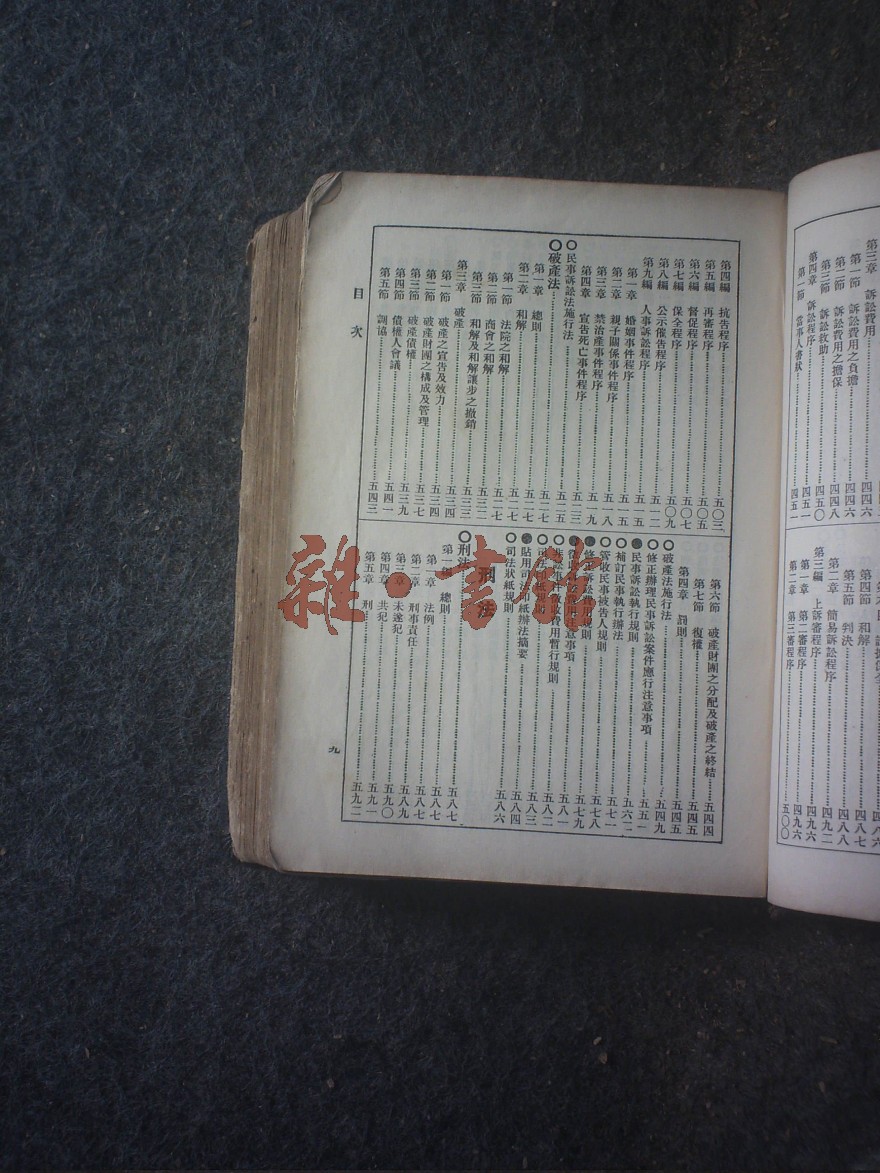 第三章 訴訟費用
第一節 訴訟費用之負擔……四四六
第二節 訴訟費用之擔保
第三節 訴訟救助……四五〇
第四章 訴訟程序……四五一
第一節 當事人書狀……四五一
第四節 和解……四八七
第五節 判決……四八八
第二章 簡易訴訟程序……四九二
第三編 上訴審程序……四九六
第一章 第二審程序……四九六
第二章 第三審程序……五〇〇
第四編 抗告程序……五〇三
第五編 再審程序……五〇五
第六編 督促程序……五〇七
第七編 保全程序……五〇九
第八編 公示催告程序……五一二
第九編 人事訴訟程序……五一五
第一章 婚姻事件程序……五一五
第二章 親子關係事件程序……五一八
第三章 禁治產事件程序……五一九
第四章 宣告死亡事件程序……五二三
○民事訴訟法施行法……五二五
○破產法……五二七
第一章 總則……五二七
第二章 和解……五二七
第一節 法院之和解……五二七
第二節 商會之和解……五三二
第三節 和解及和解讓步之撤銷……五三二
第三章 破產……五三三
第一節 破產之宣告及效力……五三四
第二節 破產財團之構成及管理……五三七
第三節 破產債權……五三九
第四節 債權人會議……五四一
第五節 調協……五四三
第六節 破產財團之分配及破產之終結……五四四
第七節 復權……五四五
第四章 罰則……五四五
○破產法施行法……五四九
○修正辦理民事訴訟案件應行注意事項……五五一
●民事訴訟執行規則……五六二
○補訂民事執行辦法……五七一
○管收民事被告人規則……五七八
●修正訴訟費用規則……五七九
●徵收訟費用注意事項……五八一
●非訟事件徵收費用暫行規則……五八二
○司法印紙規則……五八三
●貼用司法印紙辦法摘要……五八四
○司法狀紙規則……五八六
刑法
○刑法……五八七
第一編 總則……五八七
第一章 法例……五八七
第二章 刑事責任……五八九
第三章 未遂犯……五九〇
第四章 共犯……五九一
第五章 刑……五九二
目次
九
雜·書館